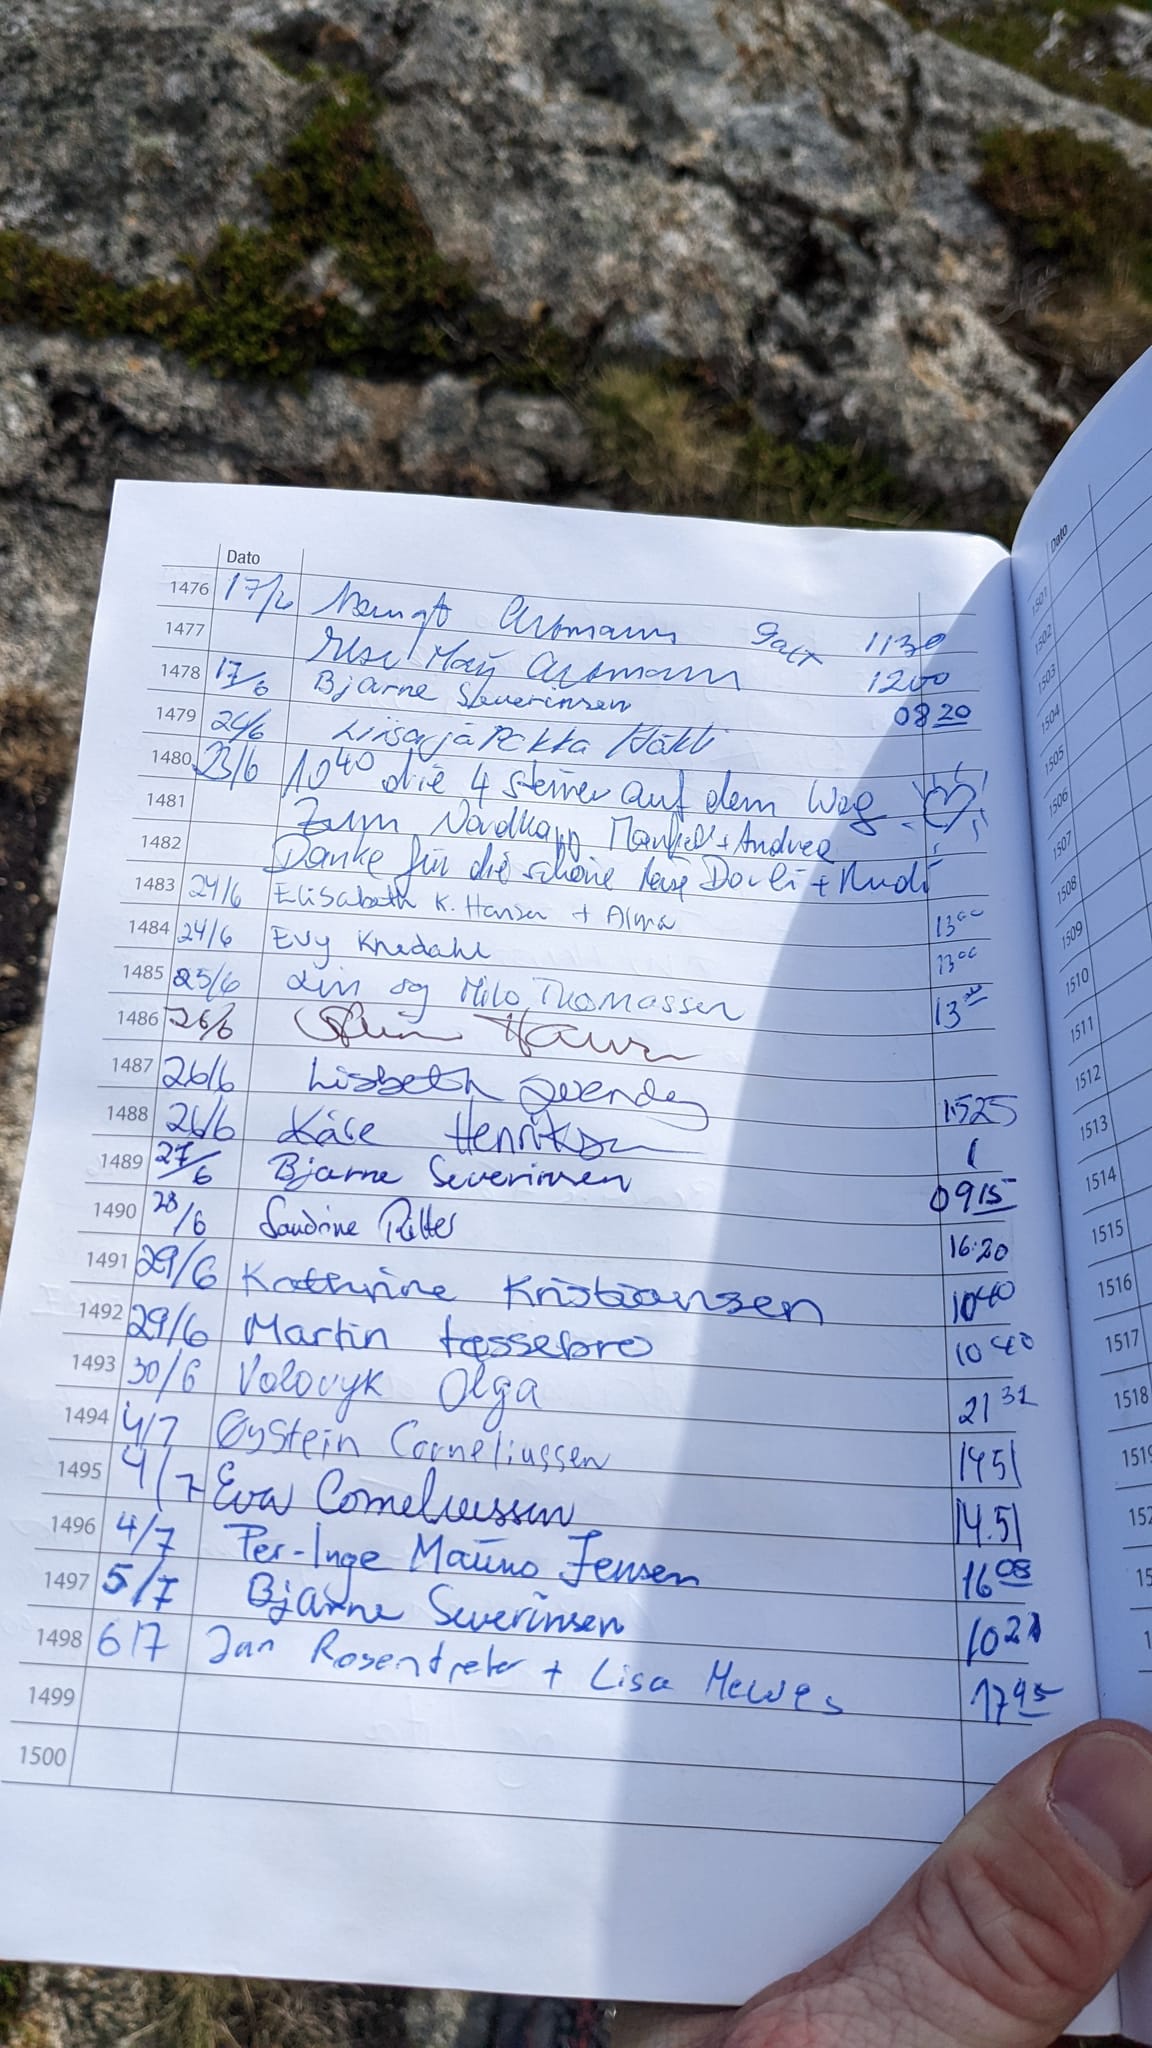 Dato
1476 17/6 Artmann 1130
1477 Else May Artmann 1200
1478 17/6 Bjarne Severinsen 0820
1479 24/6 Liisa ja Pekka
1480 23/6 10 40 die 4 steiner auf dem Weg
1481 Zum Nordkapp + Andrea
1482 Danke für die schöne Reise Dorli + Rudi
1483 24/6 Elisabeth K. Hansen + Alma 13 00
1484 24/6 Evy Knedahl 13 00
1485 25/6 Lin og Milo Thomassen 13
1486 26/6
1487 26/6 Lisbeth 1525
1488 26/6 Kåre Henriksen
1489 27/6 Bjarne Severinsen 0915
1490 28/6 Sandrine Ritter 16:20
1491 29/6 Kathrine Kristiansen 1040
1492 29/6 Martin Tessebro 1040
1493 30/6 Volovyk Olga 21 31
1494 4/7 Øystein Corneliussen 1451
1495 4/7 Eva Corneliussen 14.51
1496 4/7 Per-Inge Mauno Jensen 16 08
1497 5/7 Bjarne Severinsen 10 21
1498 6/7 Jan Rosentreter + Lisa Mewes 17 45
1499
1500
Dato
1501
1502
1503
1504
1505
1506
1507
1508
1509
1510
1511
1512
1513
1514
1515
1516
1517
1518